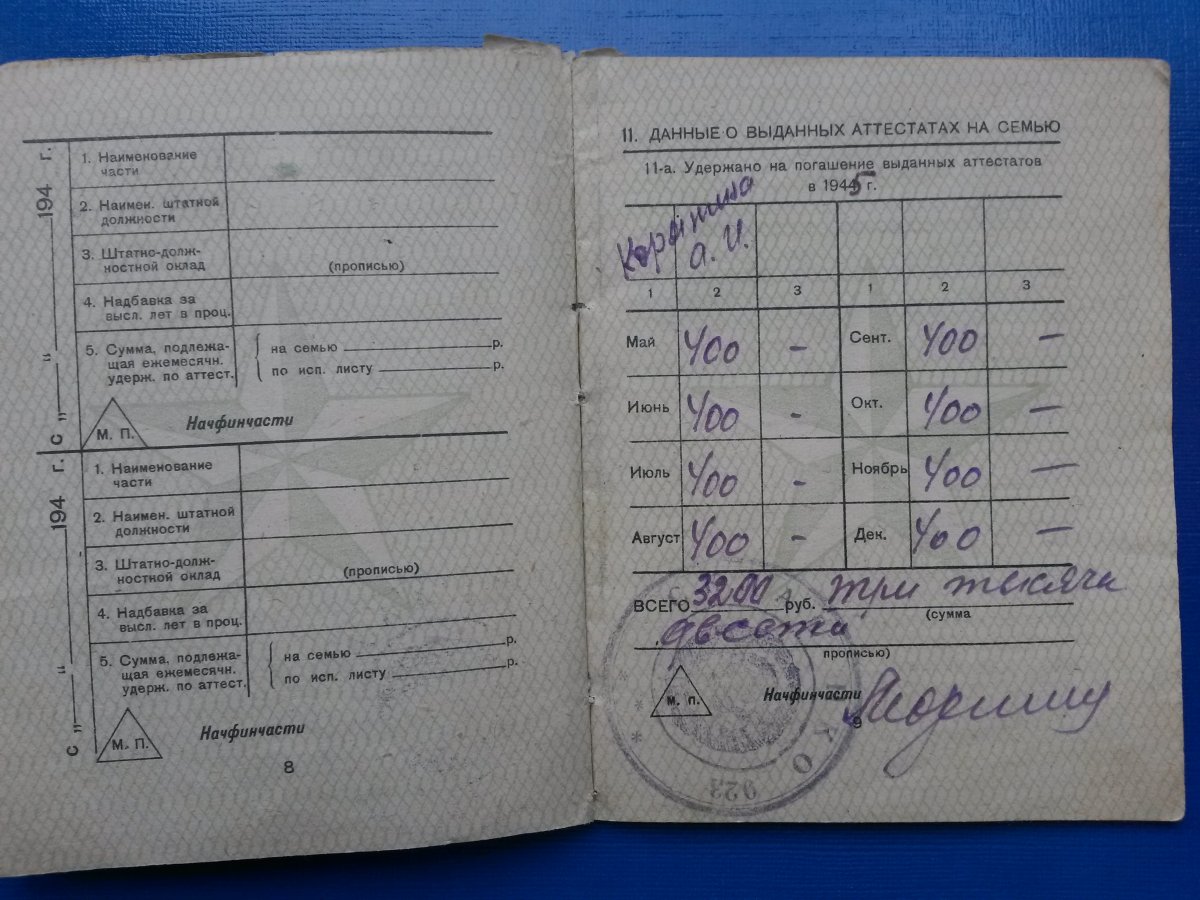 с „ “ 194 г.
1. Наименование
части
2. Наимен. штатной
должности
3. Штатно-долж-
ностной оклад
(прописью)
4. Надбавка за
высл. лет в проц.
5. Сумма, подлежа-
щая ежемесячн.
удерж. по аттест.
на семью р.
по исп. листу р.
М. П.
Начфинчасти
с „ “ 194 г.
1. Наименование
части
2. Наимен. штатной
должности
3. Штатно-долж-
ностной оклад
(прописью)
4. Надбавка за
высл. лет в проц.
5. Сумма, подлежа-
щая ежемесячн.
удерж. по аттест.
на семью р.
по исп. листу р.
М. П.
Начфинчасти
8
11. ДАННЫЕ О ВЫДАННЫХ АТТЕСТАТАХ НА СЕМЬЮ
11-а. Удержано на погашение выданных аттестатов
в 1945 г.
А. И.
1 2 3 1 2 3
Май 400 – Сент. 400 –
Июнь 400 – Окт. 400 –
Июль 400 – Ноябрь 400 –
Август 400 – Дек. 400 –
ВСЕГО 3200 руб. три тысячи
(сумма
двести
прописью)
М. П.
Начфинчасти
9
923